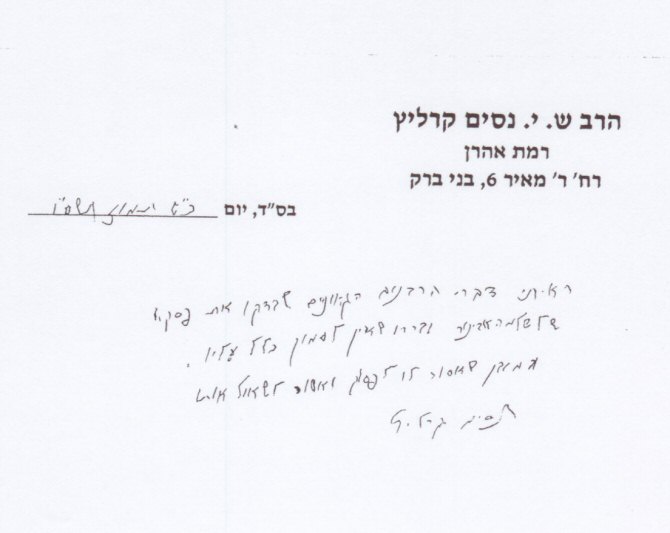 הרב ש. י. נסים קרליץ
רמת אהרן
רח' ר' מאיר 6, בני ברק
בס"ד, יום כ"ט תמוז תשס"ו
ראיתי דברי הרבנים הגאונים שבדקו את פסקיו
של שלמה אבינר וברור שאין לסמוך כלל עליו.
כמובן שאסור לו לפסוק ואסור לשאול אותו
נסים קרליץ